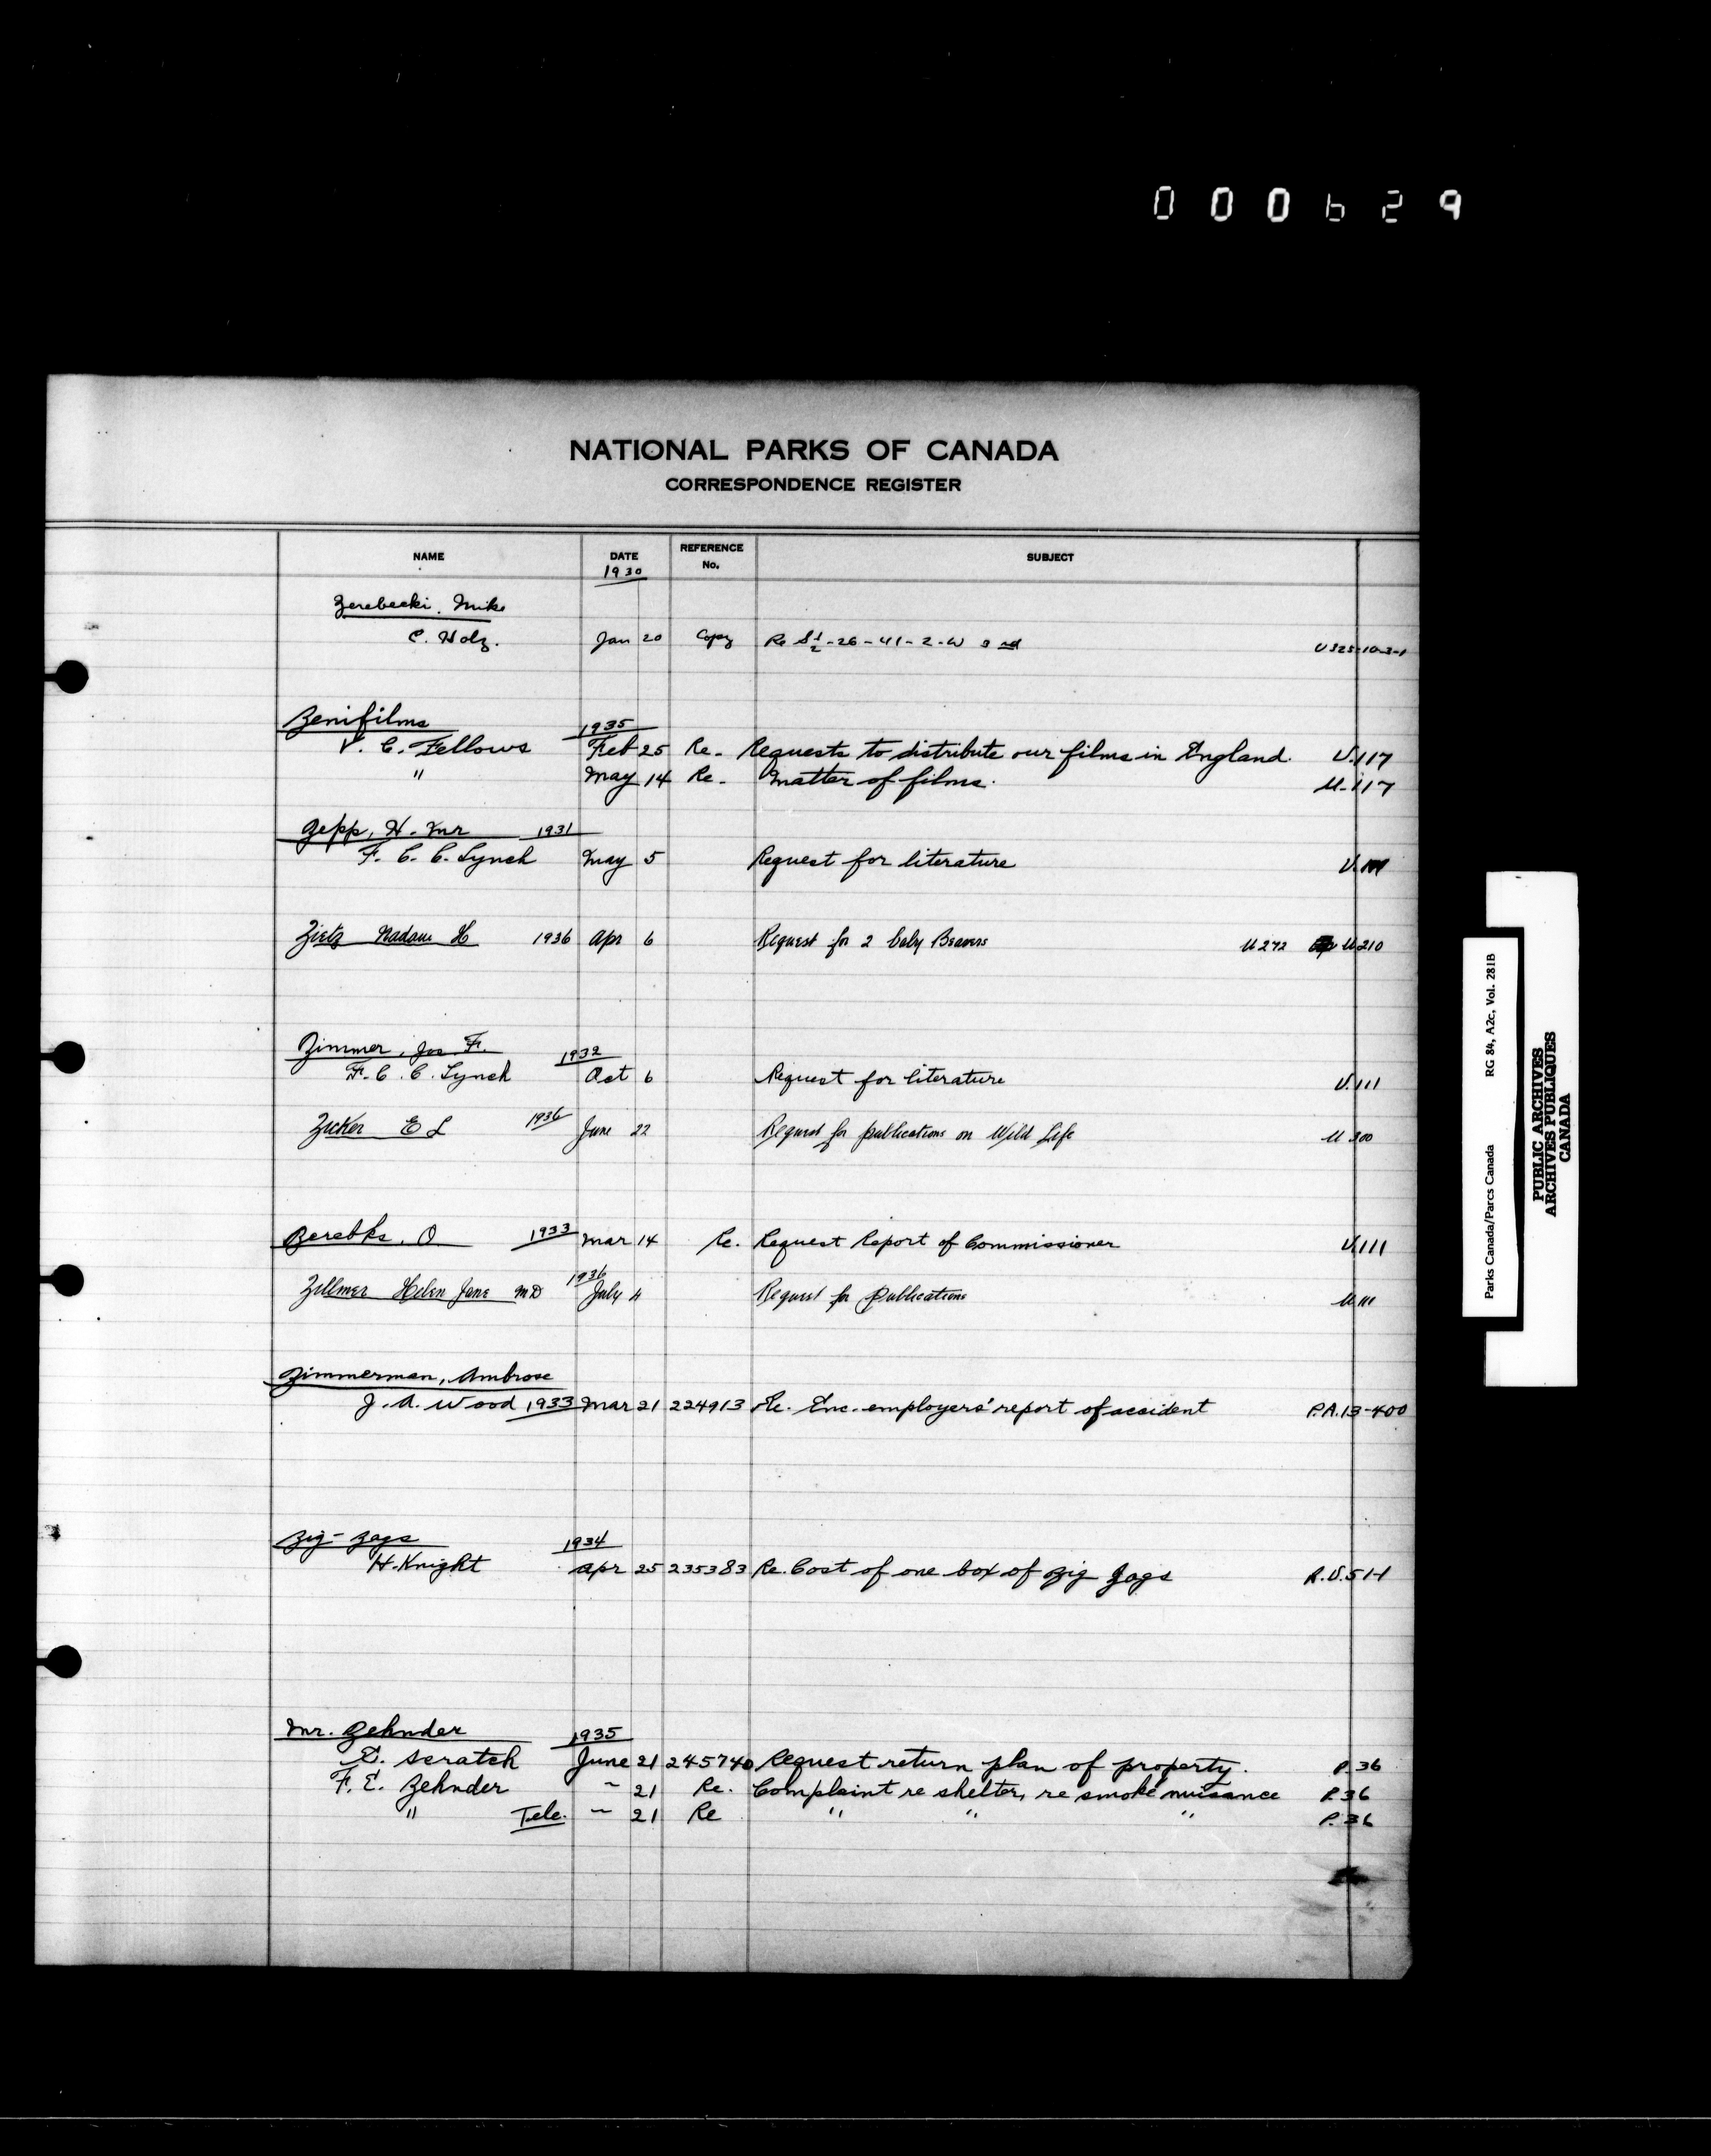 000629
NATIONAL PARKS OF CANADA
CORRESPONDENCE REGISTER
NAME DATE REFERENCE No. SUBJECT
1930
Zerebecki, Mike
C. Holz. Jan 20 Copy Re S½-26-41-2-W 3rd U325-10-3-1
Zenifilms 1935
V. C. Fellows Feb 25 Re- Requests to distribute our films in England. U.117
" May 14 Re- Matter of films. U-117
Zepp, H. Mr 1931
F. C. C. Lynch May 5 Request for literature
Zietz Madam H 1936 Apr 6 Request for 2 baby Beavers U 272 U 210
Zimmer, Jos F. 1932
F. C. C. Lynch Oct 6 Request for literature U.111
Zicker E L 1936 June 22 Request for publications on Wild Life U 300
Zerebks, O 1933 Mar 14 Re. Request Report of Commissioner U.111
Zillmer Helen Jane MD 1936 July 4 Request for publications U 111
Zimmerman, Ambrose
J. A. Wood 1933 Mar 21 224913 Re. Enc. employers' report of accident P.A.13-400
Zig-Zags 1934
H. Knight Apr 25 235383 Re. Cost of one box of Zig Zags
Mr. Zehnder 1935
E. Scratch June 21 245740 Request return plan of property. P.36
F. E. Zehnder ~ 21 Re. Complaint re shelter, re smoke nuisance P.36
" Tele. ~ 21 Re " " " P.36
Parks Canada/Parcs Canada RG 84, A2c, Vol. 281B
PUBLIC ARCHIVES
ARCHIVES PUBLIQUES
CANADA